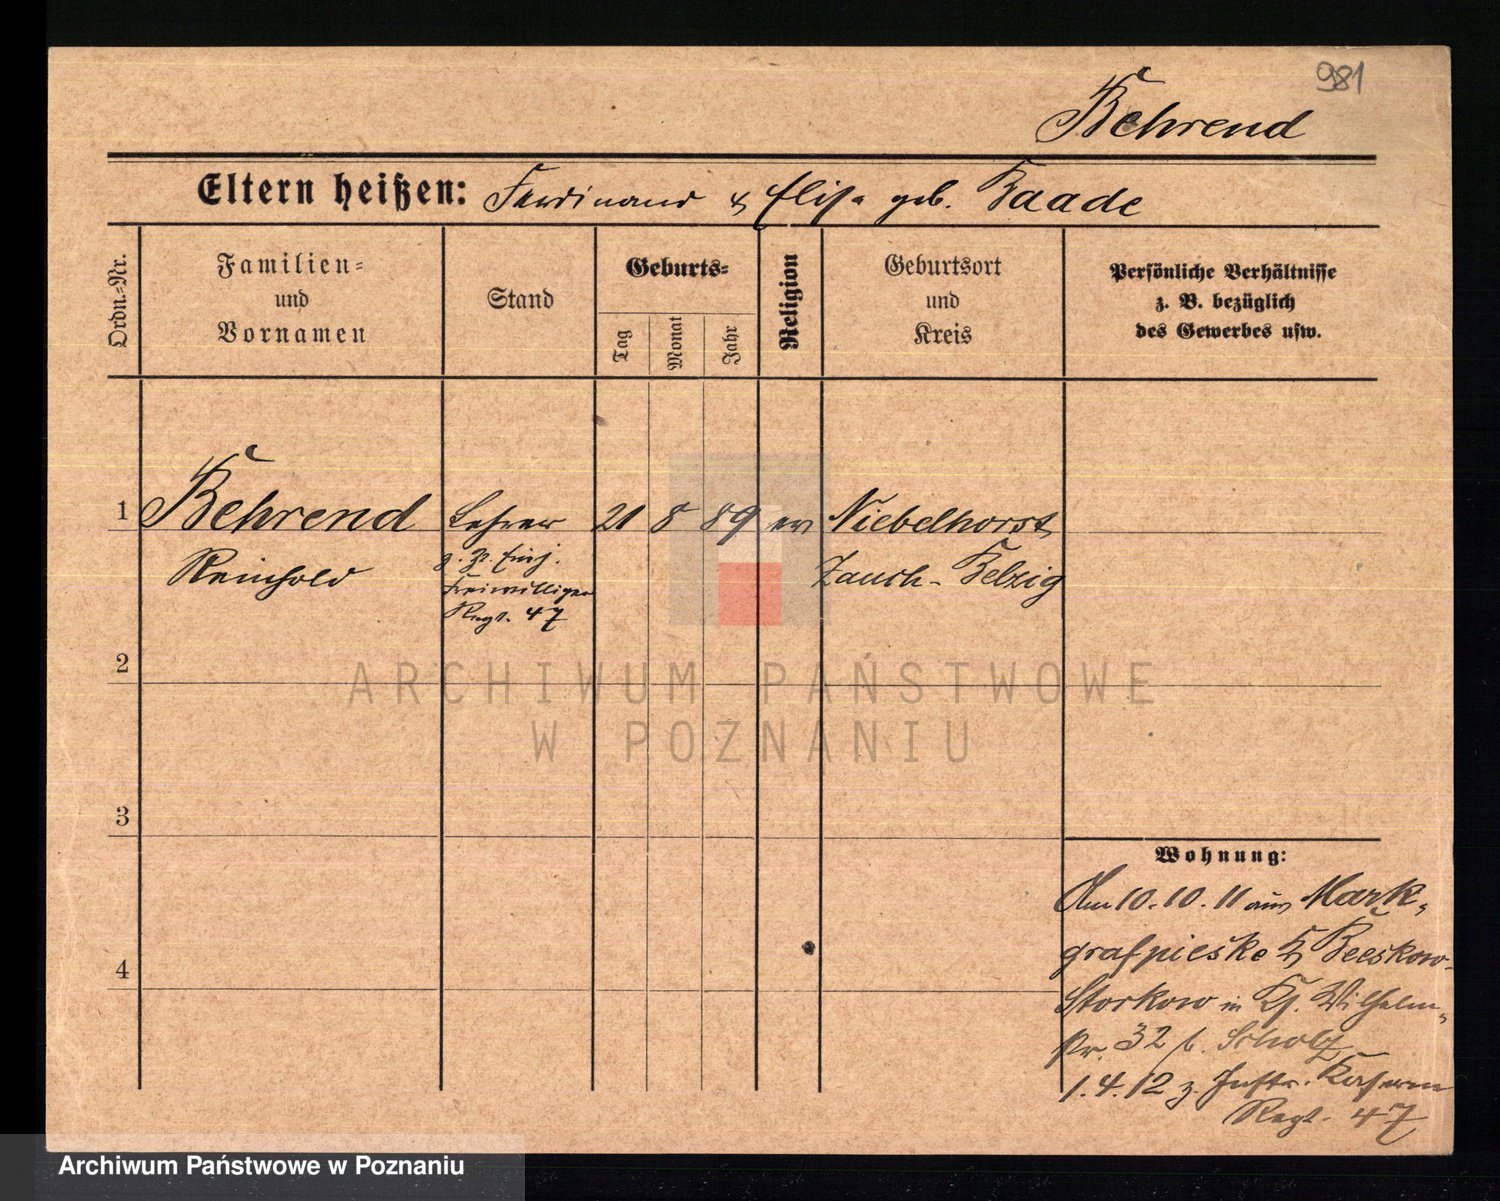 981
Behrend
Eltern heißen: Ferdinand & Elise geb. Baade
Ordn.-Nr.
Familien-
und
Vornamen
Stand
Geburts-
Tag
Monat
Jahr
Religion
Geburtsort
und
Kreis
Persönliche Verhältnisse
z. B. bezüglich
des Gewerbes usw.
1 Behrend Lehrer 21 8 89 ev Niebelhorst
Reinhold z. Zt. Einj. Zauch-Belzig
Freiwilliger
Regt. 47
2
3
4
Wohnung:
Am 10.10.11 aus Mark-
grafpieske Beeskow-
Storkow in Wilhelm-
str. 32 b. Scholz
1.4.12 z. Inftr. Kasern
Regt. 47
ARCHIWUM PAŃSTWOWE
W POZNANIU
Archiwum Państwowe w Poznaniu